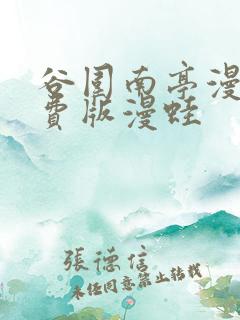 谷围南亭漫
费版漫蛙
張德信
未经同意禁止转载